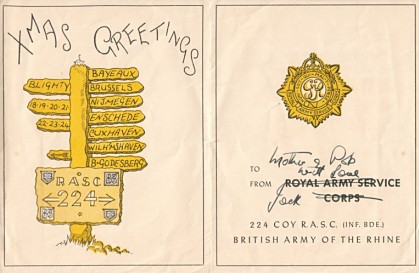 XMAS GREETINGS
BAYEAUX
BLIGHTY
BRUSSELS
NIJMEGEN
18·19·20·21
ENSCHEDE
22·23·24
CUXHAVEN
WILHMSHAVEN
B·GODESBERG
R A S C
224
TO Mother & Pop
with Love
FROM ROYAL ARMY SERVICE
Jack CORPS
224 COY R.A.S.C. (INF. BDE.)
BRITISH ARMY OF THE RHINE